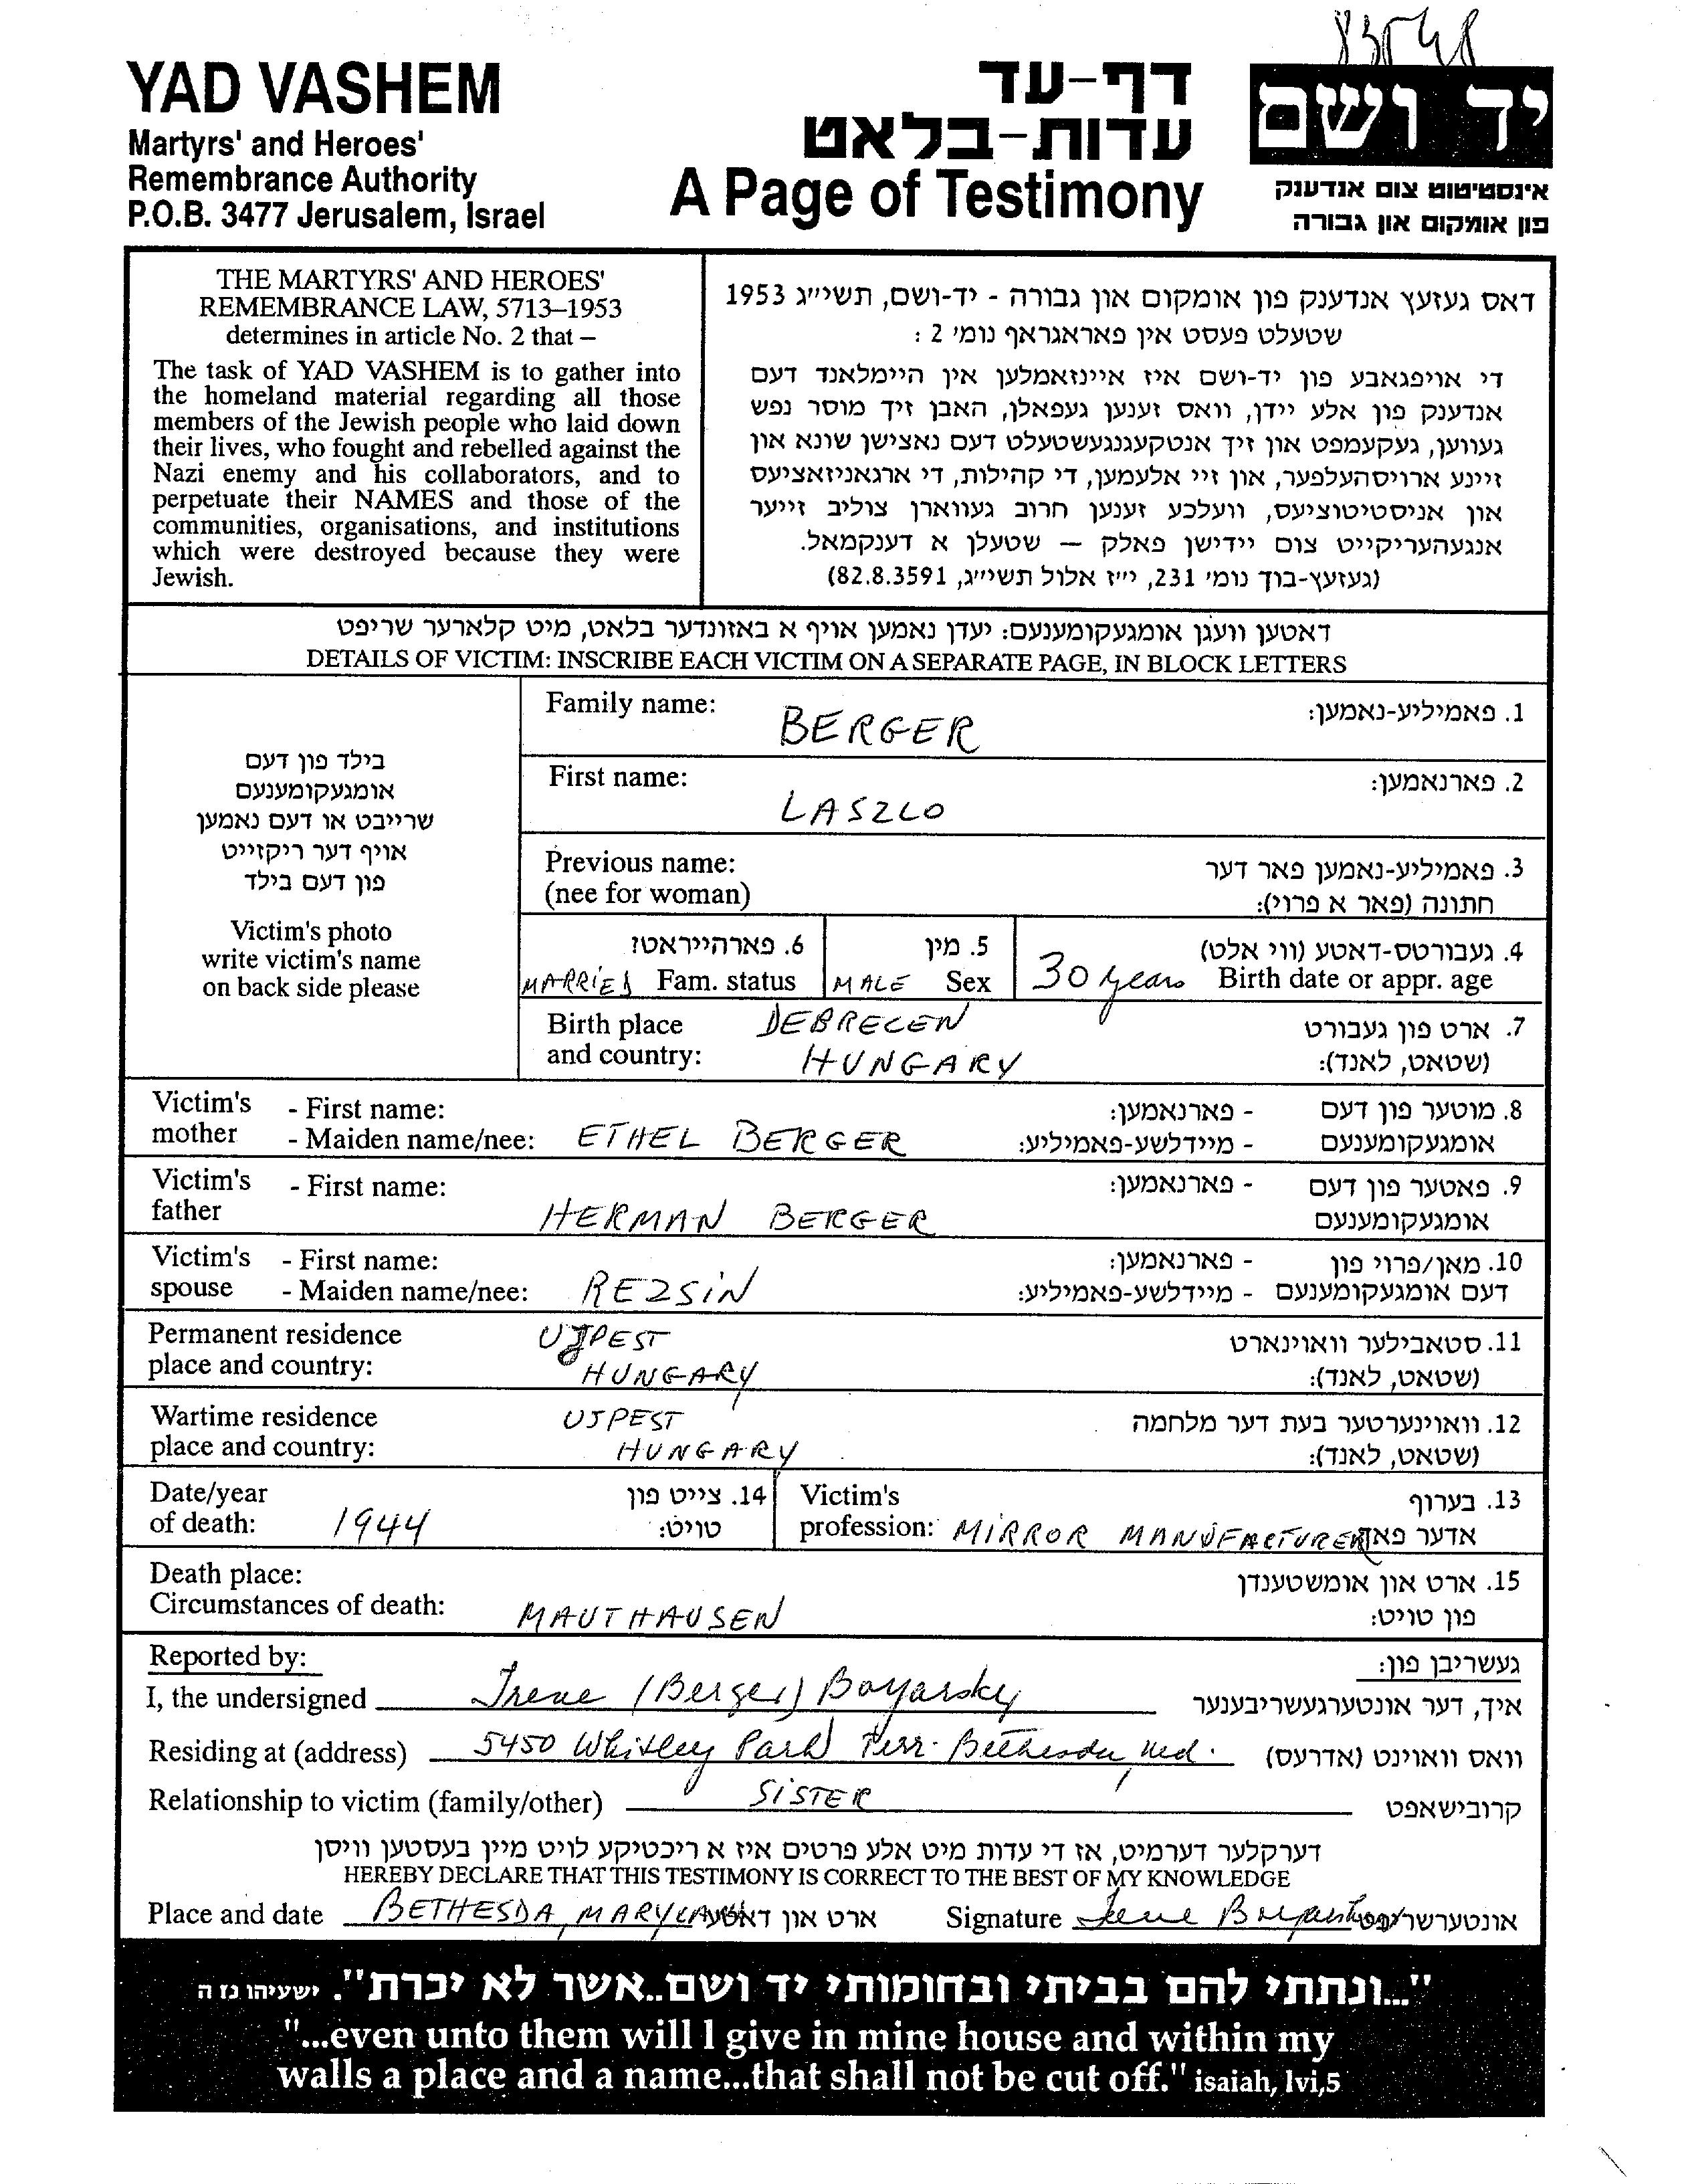 YAD VASHEM
Martyrs' and Heroes'
Remembrance Authority
P.O.B. 3477 Jerusalem, Israel
דף-עד
עדות-בלאט
A Page of Testimony
יד ושם
אינסטיטוט צום אנדענק
פון אומקום און גבורה
THE MARTYRS' AND HEROES'
REMEMBRANCE LAW, 5713–1953
determines in article No. 2 that –
The task of YAD VASHEM is to gather into
the homeland material regarding all those
members of the Jewish people who laid down
their lives, who fought and rebelled against the
Nazi enemy and his collaborators, and to
perpetuate their NAMES and those of the
communities, organisations, and institutions
which were destroyed because they were
Jewish.
דאס געזעץ אנדענק פון אומקום און גבורה - יד-ושם, תשי״ג 1953
שטעלט פעסט אין פאראגראף נומ׳ 2 :
די אויפגאבע פון יד-ושם איז איינזאמלען אין היימלאנד דעם
אנדענק פון אלע יידן, וואס זענען געפאלן, האבן זיך מוסר נפש
געווען, געקעמפט און זיך אנטקעגנגעשטעלט דעם נאצישן שונא און
זיינע ארויסהעלפער, און זיי אלעמען, די קהילות, די ארגאניזאציעס
און אניסטיטוציעס, וועלכע זענען חרוב געווארן צוליב זייער
אנגעהעריקייט צום יידישן פאלק – שטעלן א דענקמאל.
(געזעץ-בוך נומ׳ 231, י״ז אלול תשי״ג, 82.8.3591)
דאטען וועגן אומגעקומענעם: יעדן נאמען אויף א באזונדער בלאט, מיט קלארער שריפט
DETAILS OF VICTIM: INSCRIBE EACH VICTIM ON A SEPARATE PAGE, IN BLOCK LETTERS
בילד פון דעם
אומגעקומענעם
שרייבט או דעם נאמען
אויף דער ריקזייט
פון דעם בילד
Victim's photo
write victim's name
on back side please
Family name: BERGER 1. פאמיליע-נאמען:
First name: LASZLO 2. פארנאמען:
Previous name: 3. פאמיליע-נאמען פאר דער
(nee for woman) חתונה (פאר א פרוי):
6. פארהייראטז 5. מין 4. געבורטס-דאטע (ווי אלט)
MARRIED Fam. status MALE Sex 30 years Birth date or appr. age
Birth place DEBRECEN 7. ארט פון געבורט
and country: HUNGARY (שטאט, לאנד):
Victim's - First name: - פארנאמען: 8. מוטער פון דעם
mother - Maiden name/nee: ETHEL BERGER - מיידלשע-פאמיליע: אומגעקומענעם
Victim's - First name: - פארנאמען: 9. פאטער פון דעם
father HERMAN BERGER אומגעקומענעם
Victim's - First name: - פארנאמען: 10. מאן/פרוי פון
spouse - Maiden name/nee: REZSIN - מיידלשע-פאמיליע: דעם אומגעקומענעם
Permanent residence UJPEST 11. סטאבילער וווינארט
place and country: HUNGARY (שטאט, לאנד):
Wartime residence UJPEST 12. וואוינערטער בעת דער מלחמה
place and country: HUNGARY (שטאט, לאנד):
Date/year 14. צייט פון Victim's 13. בערוף
of death: 1944 טויט: profession: MIRROR MANUFACTURER אדער פאך
Death place: 15. ארט און אומשטענדן
Circumstances of death: MAUTHAUSEN פון טויט:
Reported by: געשריבן פון:
I, the undersigned Irene (Berger) Boyarsky איך, דער אונטערגעשריבענער
Residing at (address) 5450 Whitley Park Terr. Bethesda, Md. וואס וואוינט (אדרעס)
Relationship to victim (family/other) SISTER קרובישאפט
דערקלער דערמיט, אז די עדות מיט אלע פרטים איז א ריכטיקע לויט מיין בעסטען וויסן
HEREBY DECLARE THAT THIS TESTIMONY IS CORRECT TO THE BEST OF MY KNOWLEDGE
Place and date BETHESDA, MARYLAND ארט און דאטע Signature Irene Boyarsky אונטערשריפט
"...ונתתי להם בביתי ובחומותי יד ושם..אשר לא יכרת". ישעיהו נז ה
"...even unto them will I give in mine house and within my
walls a place and a name...that shall not be cut off." isaiah, lvi,5